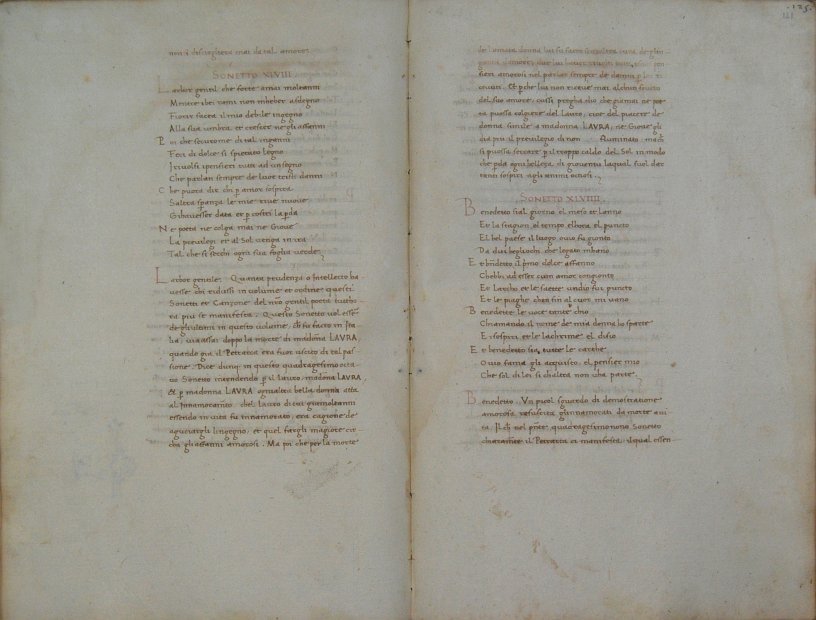 non si disciogliera mai da tal amore.
SONETTO XLVIII
Larbor gentil che forte amai moltanni
Mentre ibei rami non mheber adsdegno
Fiorir facea il mio debile ingegno
Alla sua umbra et crescer negli affanni
Poi che securo me di tal inganni
Feci di dolce si spietato legno
I rivolsi ipensier tutti ad un segno
Che parlan sempre de lor tristi danni
Che potra dir chi p amor sospira
Saltra speranza le mie rime nuove
Gihavesser data et p costei la pda
Ne poeta ne colga mai ne Giove
La privilegi et al Sol venga in ira
Tal che si secchi ogni sua foglia verde
Larbor gentile. Quanta prudenza o Intellecto ha
vesse chi ridussi in volume et ordine questi
Sonetti et Canzone del nro gentil poeta tuttho
ra piu se manifesta. Questo Sonetto vol essere
de gli ultimi in questo volume, ch fu facto in Ita
lia, via assai doppo la morte di madonna LAVRA,
quando gia il Petrarca era fuor uscito di tal pas
sione. Dice dunq in questo quadragesimo octa
vo Sonetto intendendo p il lauro, madona LAVRA,
Et p madonna LAVRA ognaltra bella donna atta
al Innamorarsi. chel lauro di cui gia moltanni
essendo in vita fu innamorato, era cagione de
aguciargli lingegno, et quel fargli magiore cir
cha gli affanni amorosi. Ma poi che per la morte
125
121
de lamata donna lui fu facto
sieri amorosi nel parlar sempre de danni
ceuuti. Et pche lui non riceve mai alchun fructo
del suo amore, cussi pregha dio che giamai ne poe
ta possa cogliere del Lauro, cioe del piacere de
donna simile a madonna LAVRA, ne Giove gli
dia piu il previlegio di non fluminato, mach
si possa seccare p il troppo caldo del Sol in modo
che pda ogni bellezza di gioventu laqual suol dar
tanti sospiri agli animi ociosi.
SONETTO XLVIIII
Benedetto sial giorno, el mese et lanno
Et la stagion, el tempo, elhora, el puncto
El bel paese il luogo, ovio fu gionto
Da dui begliochi che legato mhano
Et bndetto il pmo dolce affanno
Chebbi ad esser cum amor congionto
Et larcho et le saette undio fui puncto
Et le piaghe chen fin al cuor mi vano
Benedette le voce tante chio
Chiamando il nome de mia donna ho sparte
E i sospiri et le lachrime el disio
Et benedette sia tutte le charte
Ovio fama gli acquisto, el pensier mio
Che sol di lei si chaltra non vha parte
Benedetto. Vn picol sguardo di demostratione
amorosa resuscita glinnamorati da morte a vi
ta. Il ch nel pnte quadragesimonono Sonetto
charamte il Petrarca ci manifesta, il qual essen